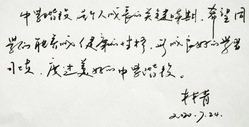 中学阶段,是个人成长的关键时期,希望同
学们能养成健康的心态,形成良好的学习
习惯,度过美好的中学阶段。
林青
2020.7.24.